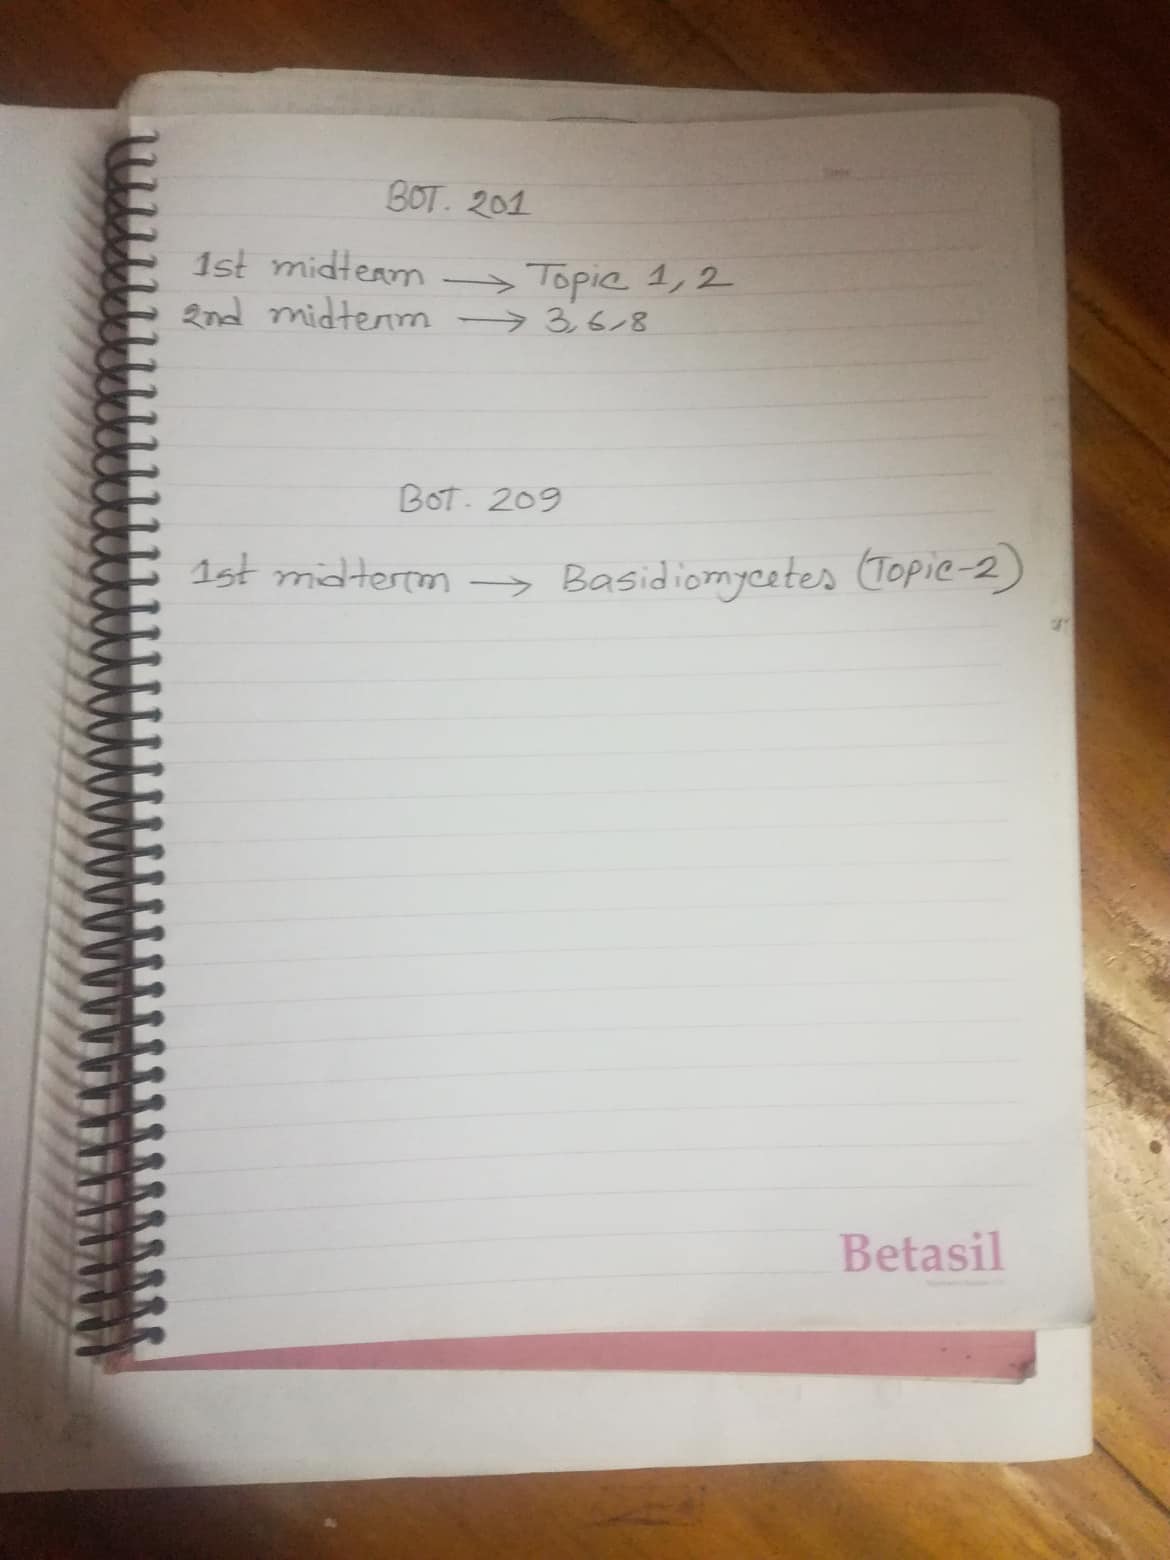 BOT. 201
1st midterm → Topic 1, 2
2nd midterm → 3, 6, 8
BOT. 209
1st midterm → Basidiomycetes (Topic-2)
Betasil